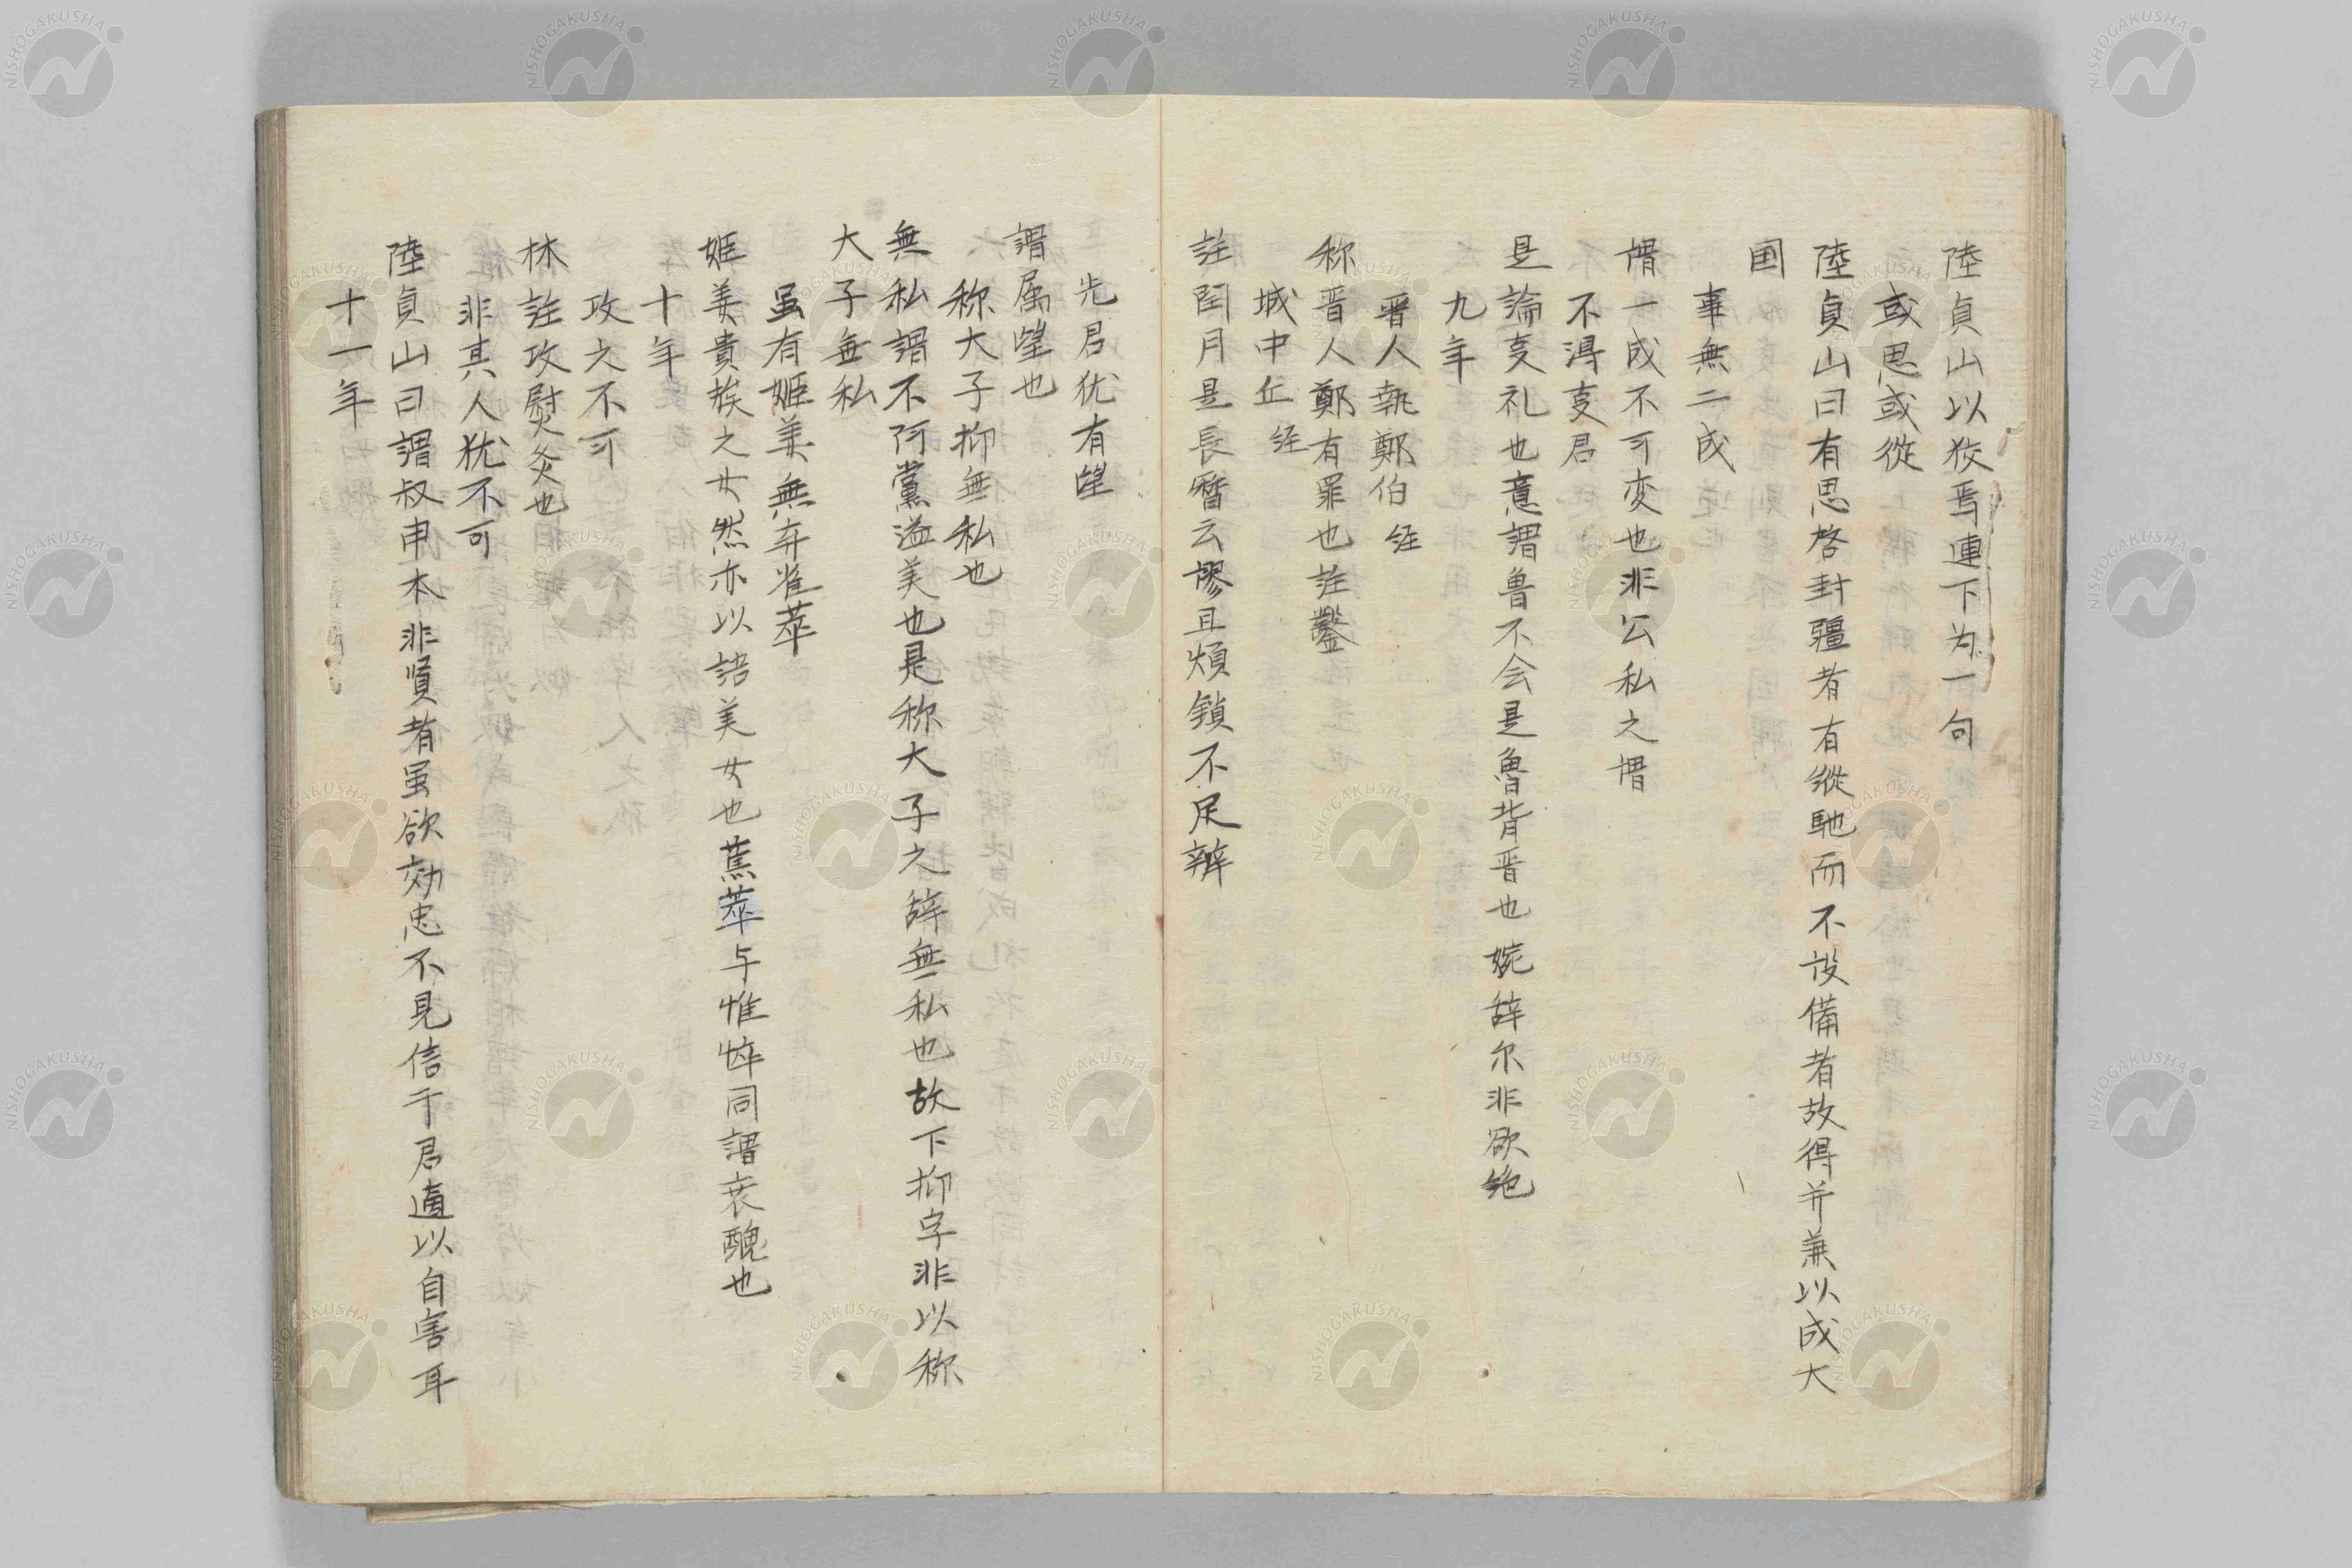 陸貞山以狡焉連下为一句
或思或從
陸貞山曰有思啓封疆者有縱馳而不設備者故得并兼以成大
国
事無二成
一成不可変也非公私之
不得叓君
是論叓礼也意謂魯不会是魯背晋也婉辞尓非欲絶
九年
晋人執鄭伯 経
称晋人鄭有罪也註鑿
城中丘 経
註閏月是長暦云謬且煩鎖不足辨
先君犹有望
謂属望也
称大子抑無私也
無私謂不阿黨溢美也是称大子之辞無私也故下抑字非以称
大子無私
虽有姬姜無弃蕉萃
姬姜貴族之女然亦以語美女也蕉萃与惟悴同謂衰醜也
十年
攻之不可
林註攻熨灸也
非其人犹不可
陸貞山曰謂叔申本非賢者虽欲効忠不見信于君適以自害耳
十一年
NISHOGAKUSHA